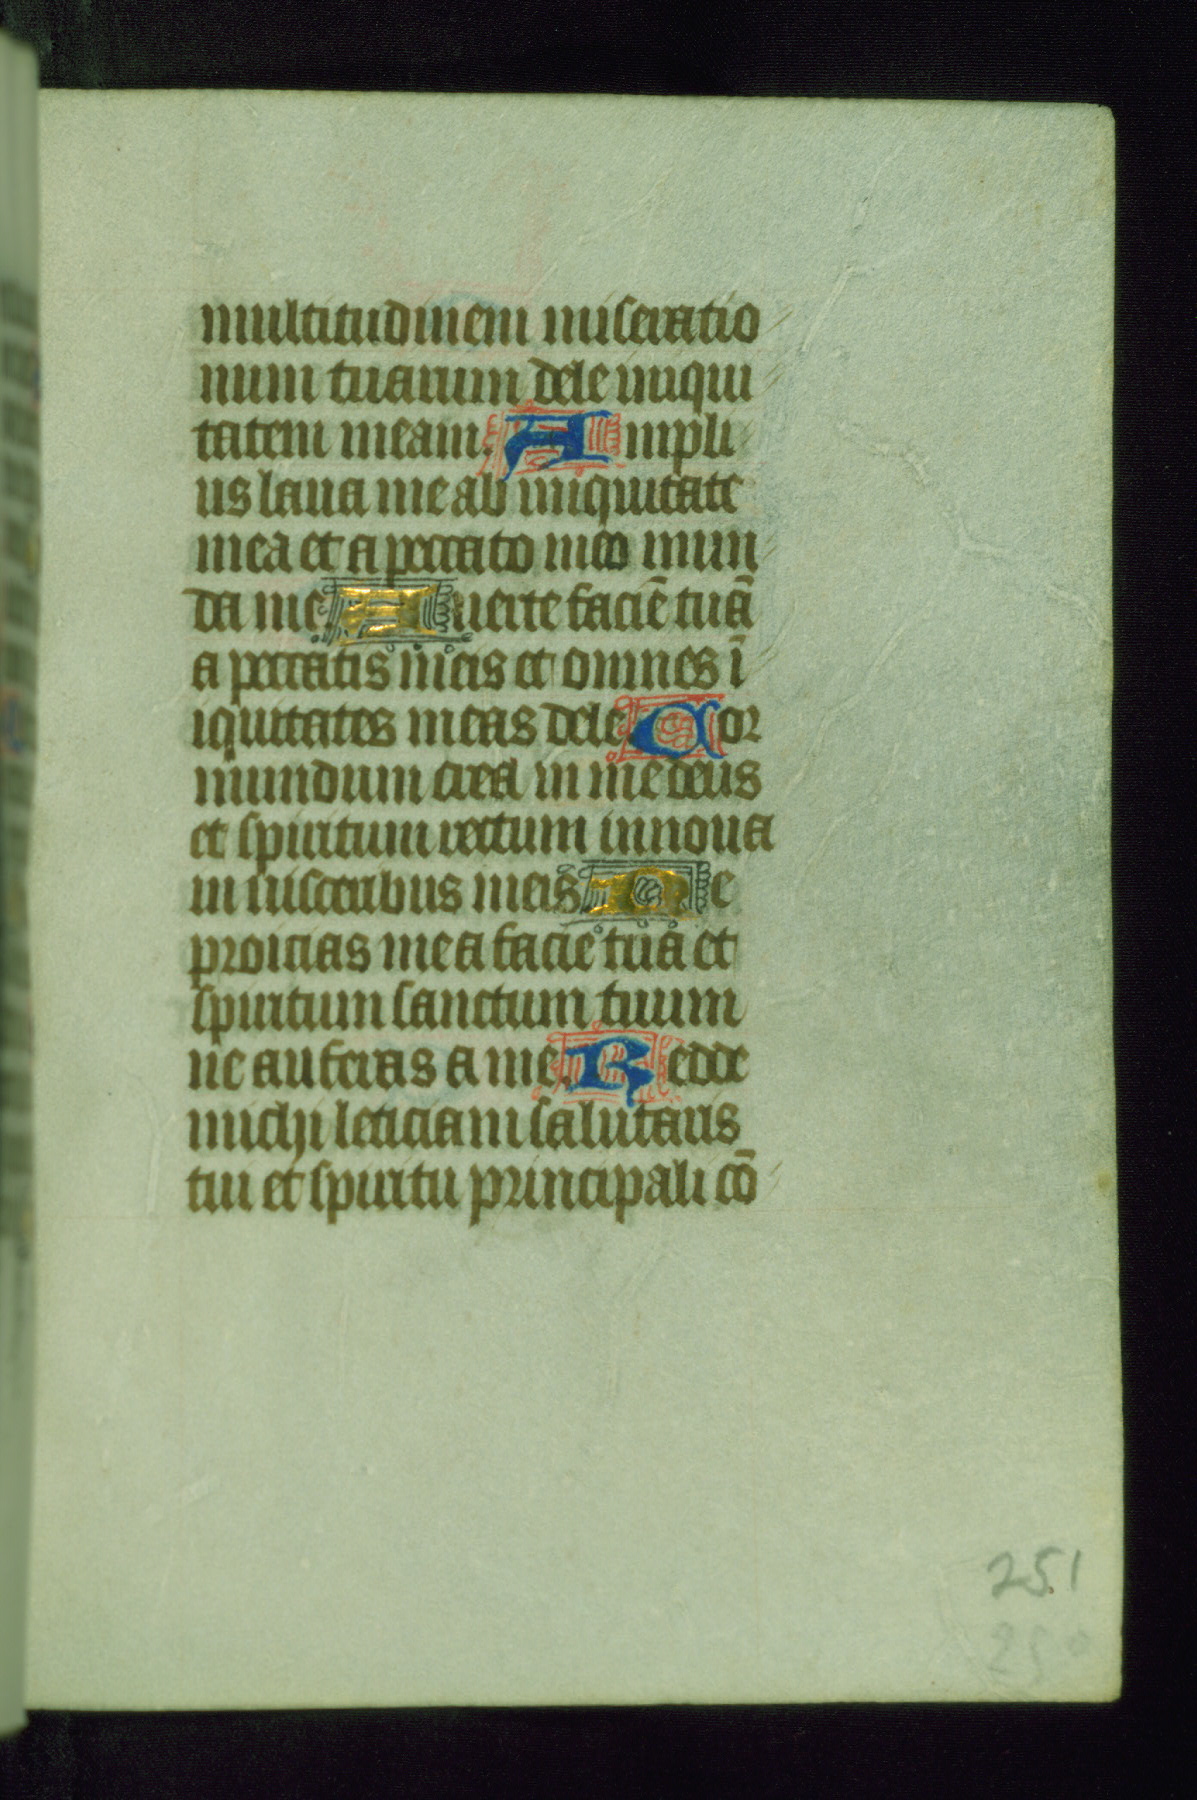 multitudinem miseratio
num tuarum dele iniqui
tatem meam. Ampli
us laua me ab iniquitate
mea et a peccato meo mun
da me Auerte faciē tuā
a peccatis meis et omnes ī
iquitates meas dele. Cor
mundum crea in me deus
et spiritum rectum innoua
in uisceribus meis Ne
proicias me a facie tua et
spiritum sanctum tuum
ne auferas a me. Redde
michi leticiam salutaris
tui et spiritu principali cō
251
250